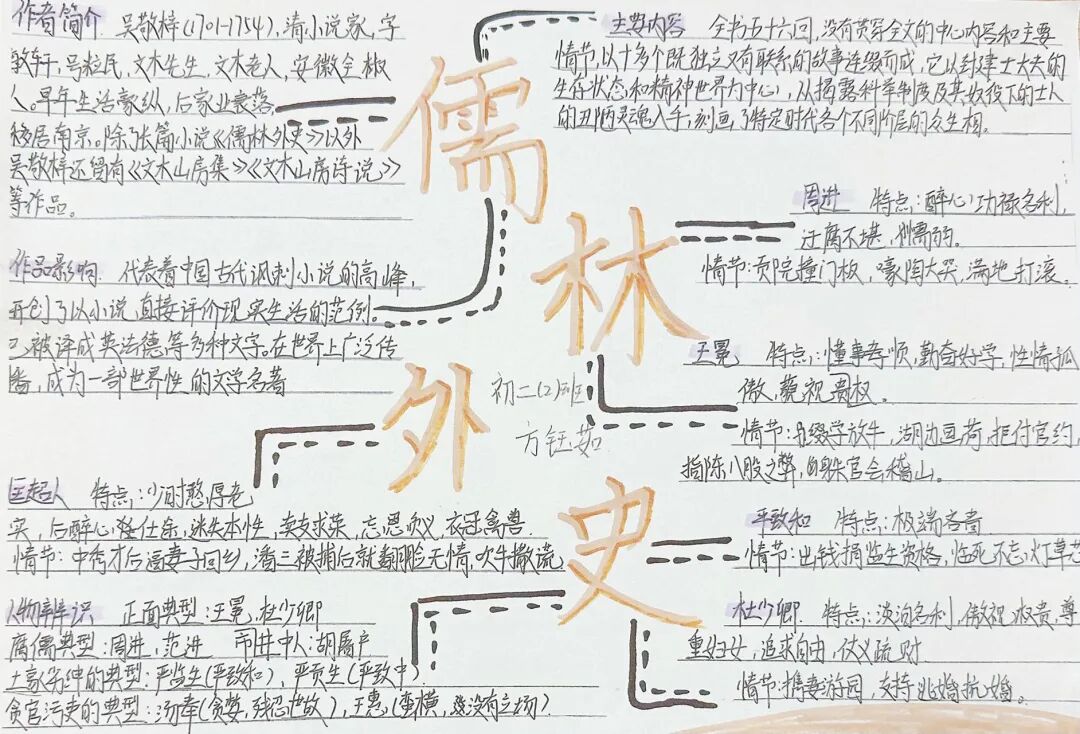 作者简介 吴敬梓(1701-1754),清小说家,字
敏轩,号粒民,文木先生,文木老人,安徽全椒
人。早年生活豪纵,后家业衰落
移居南京。除了长篇小说《儒林外史》以外
吴敬梓还留有《文木山房集》《文木山房诗说》
等作品。
作品影响 代表着中国古代讽刺小说的高峰,
开创了以小说直接评价现实生活的范例。
已被译成英法德等多种文字。在世界上广泛传
播,成为一部世界性的文学名著
匡超人 特点:少时憨厚老
实,后醉心经仕途,迷失本性,卖友求荣,忘恩负义,衣冠禽兽
情节:中秀才后逼妻子回乡,潘三被捕后就翻脸无情,吹牛撒谎
人物辨识 正面典型:王冕,杜少卿
腐儒典型:周进,范进 市井中人:胡屠户
土豪劣绅的典型:严监生(严致和),严贡生(严致中)
贪官污吏的典型:汤奉(贪婪,残忍世故),王惠(蛮横,没有立场)
儒
林
外
史
初二(2)班
方钰茹
主要内容 全书五十六回,没有贯穿全文的中心内容和主要
情节,以十多个既独立又有联系的故事连缀而成,它以封建士大夫的
生存状态和精神世界为中心,从揭露科举制度及其奴役下的士人
的丑陋灵魂入手,刻画了特定时代各个不同阶层的众生相。
周进 特点:醉心功禄名利,
迂腐不堪,懦弱。
情节:贡院撞门板,嚎陶大哭,满地打滚。
王冕 特点:懂事孝顺,勤奋好学,性情孤
傲,藐视贵权。
情节:缀学放牛,湖边画荷,拒付官约,
指陈八股之弊,躲官会稽山。
严致和 特点:极端吝啬
情节:出钱捐监生资格,临死不忘灯草芯
杜少卿 特点:淡泊名利,傲视权贵,尊
重妇女,追求自由,仗义疏财
情节:携妻游园,支持逃婚抗婚。